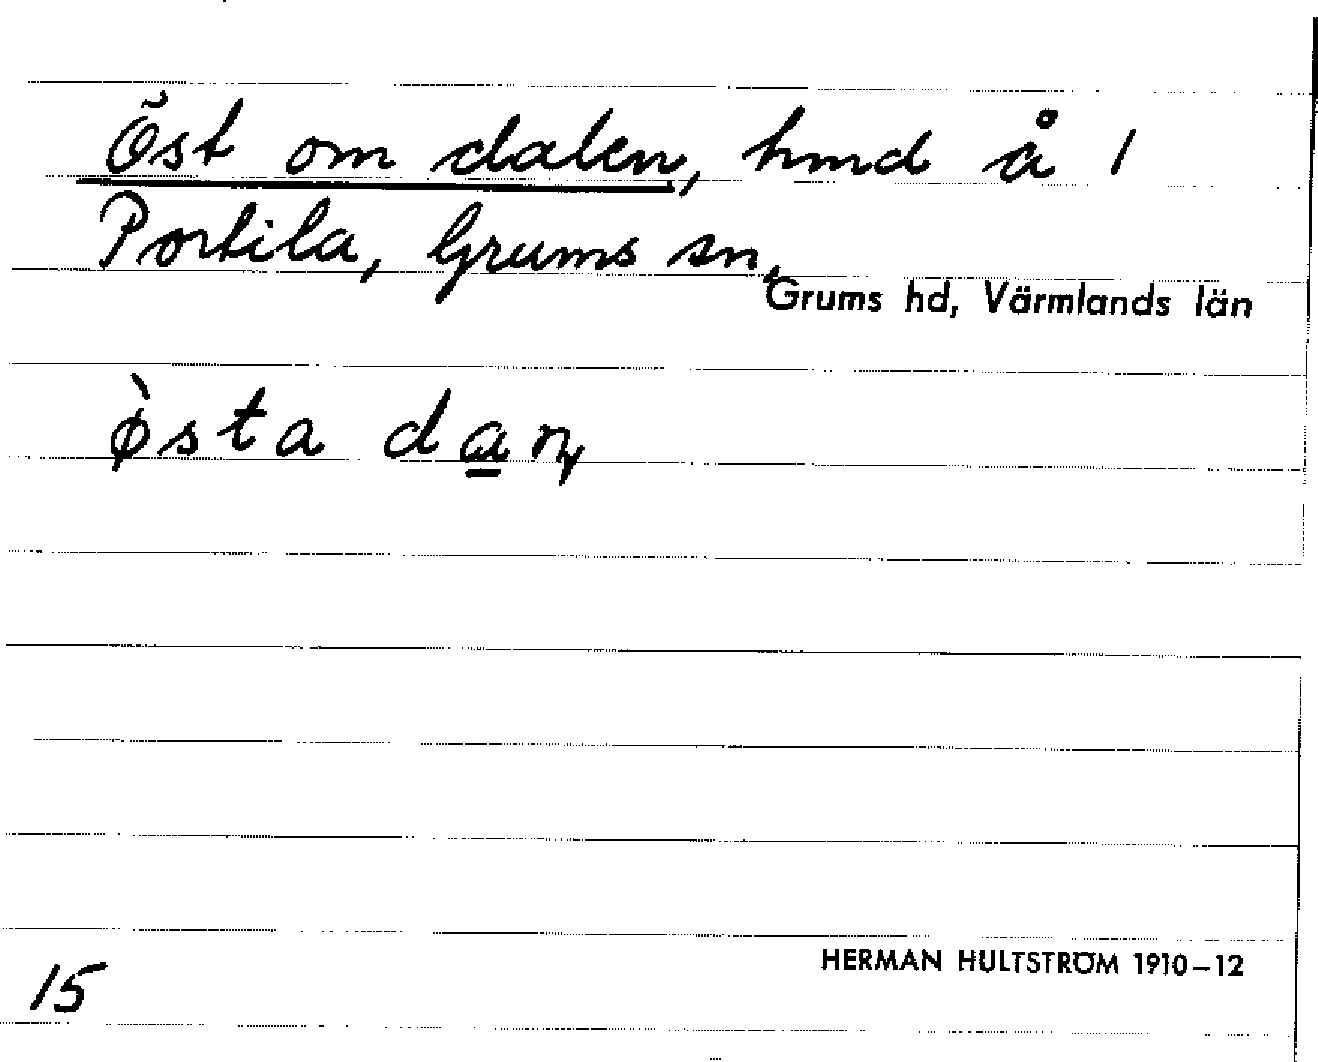 Öst om dalen, hmd å 1
Portila, Grums sn,
Grums hd, Värmlands län
ø̀sta da̱n
15
HERMAN HULTSTRÖM 1910–12